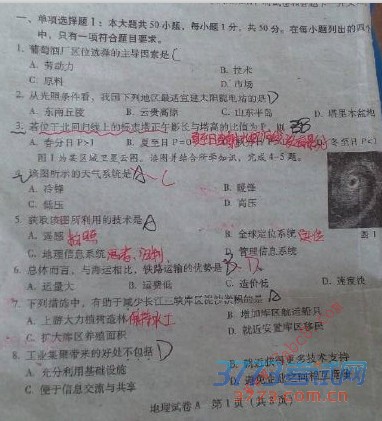 一、单项选择题Ⅰ：本大题共50小题，每小题1分，共50分。在每小题列出的四个
中，只有一项符合题目要求。
1. 葡萄酒厂区位选择的主导因素是 C
A. 劳动力 B. 技术
C. 原料 D. 市场
2. 从光照条件看，我国下列地区最适宜建太阳能电站的是 D
A. 东南丘陵 B. 云贵高原 C. 山东半岛 D. 塔里木盆地
3. 若位于北回归线上的标志塔正午影长与塔高的比值为P，则 B
A. 春分日P>1 B. 夏至日P=0 冬至日P<1
图1为某区域卫星云图，读图并结合所学知识，完成4-5题。
4. 该图所示的天气系统是 A C
A. 冷锋 B. 暖锋
C. 低压 D. 高压
图1
5. 获取该图所利用的技术是 A
A. 遥感 B. 全球定位系统 定位
C. 地理信息系统 D. 管理信息系统
6. 总体而言，与海运相比，铁路运输的优势是 B D
A. 运量大 B. 运费低 C. 造价低 D. 速度快
7. 下列措施中，有助于减少长江三峡库区泥沙淤积的是 A
A. 上游大力植树造林 保持水土 B. 增加库区航运船只
C. 扩大库区养殖面积 D. 就近安置库区移民
8. 工业集聚带来的好处不包括 D
A. 充分利用基础设施 B. 就近获得更多技术支持
C. 便于信息交流与共享 D. 避免企业之间相互竞争
地理试卷A 第1页（共8页）